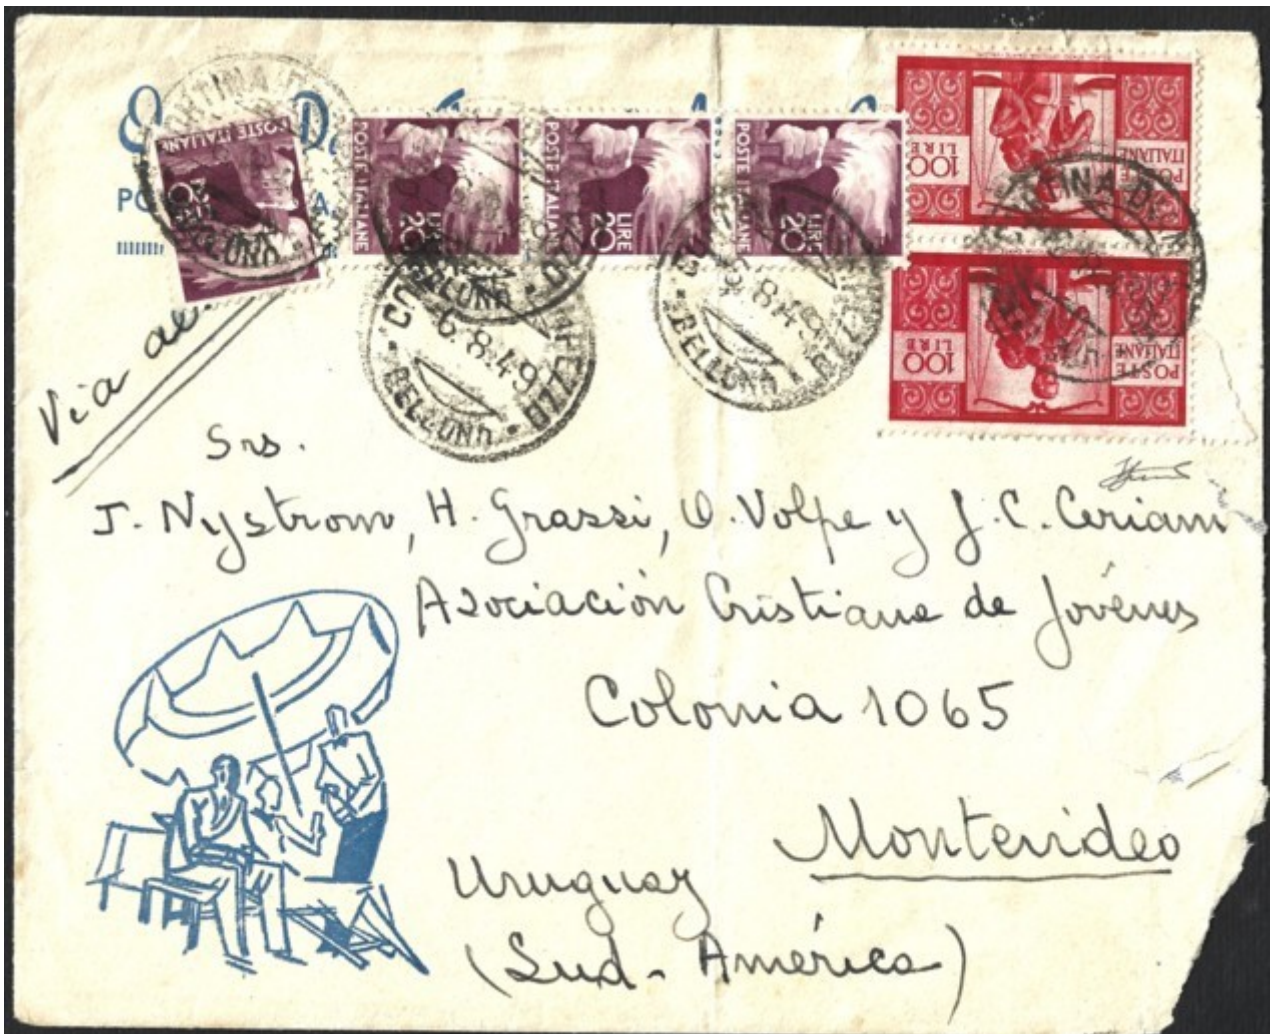 POSTE ITALIANE
LIRE 20
POSTE ITALIANE
LIRE 20
POSTE ITALIANE
LIRE 20
POSTE ITALIANE
LIRE 20
POSTE ITALIANE
100 LIRE
POSTE ITALIANE
100 LIRE
CORTINA D'
BELLUNO
6.8.49
BELLUNO
6.8.49
BELLUNO
Via
Srs.
J. Nystrom, H. Grassi, O. Volpe y J. C. Ceriani
Asociación Cristiana de Jóvenes
Colonia 1065
Montevideo
Uruguay
(Sud-América)